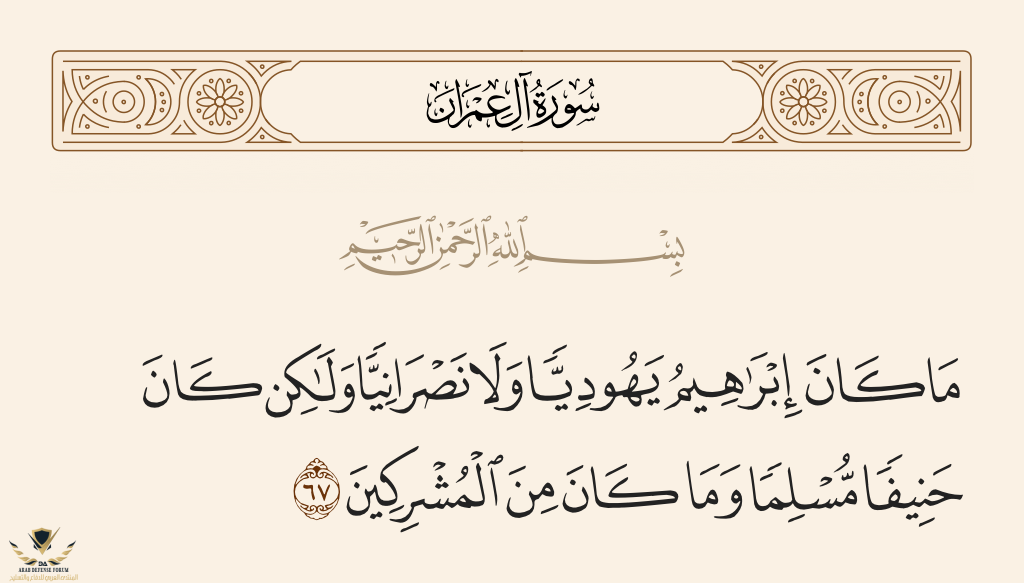 سُورَةُ آلِ عِمْرَانَ
بِسْمِ ٱللَّهِ ٱلرَّحْمَٰنِ ٱلرَّحِيمِ
مَا كَانَ إِبْرَٰهِيمُ يَهُودِيًّا وَلَا نَصْرَانِيًّا وَلَٰكِن كَانَ
حَنِيفًا مُّسْلِمًا وَمَا كَانَ مِنَ ٱلْمُشْرِكِينَ ٦٧
ARAB DEFENSE FORUM
المنتدى العربي للدفاع والتسليح